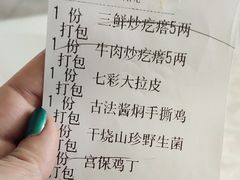 1 份 三鲜炒疙瘩5两
打包
1 份 牛肉炒疙瘩5两
打包
1 份 七彩大拉皮
打包
1 份 古法酱焖手撕鸡
打包
1 份 干烧山珍野生菌
打包
1 份 宫保鸡丁
打包